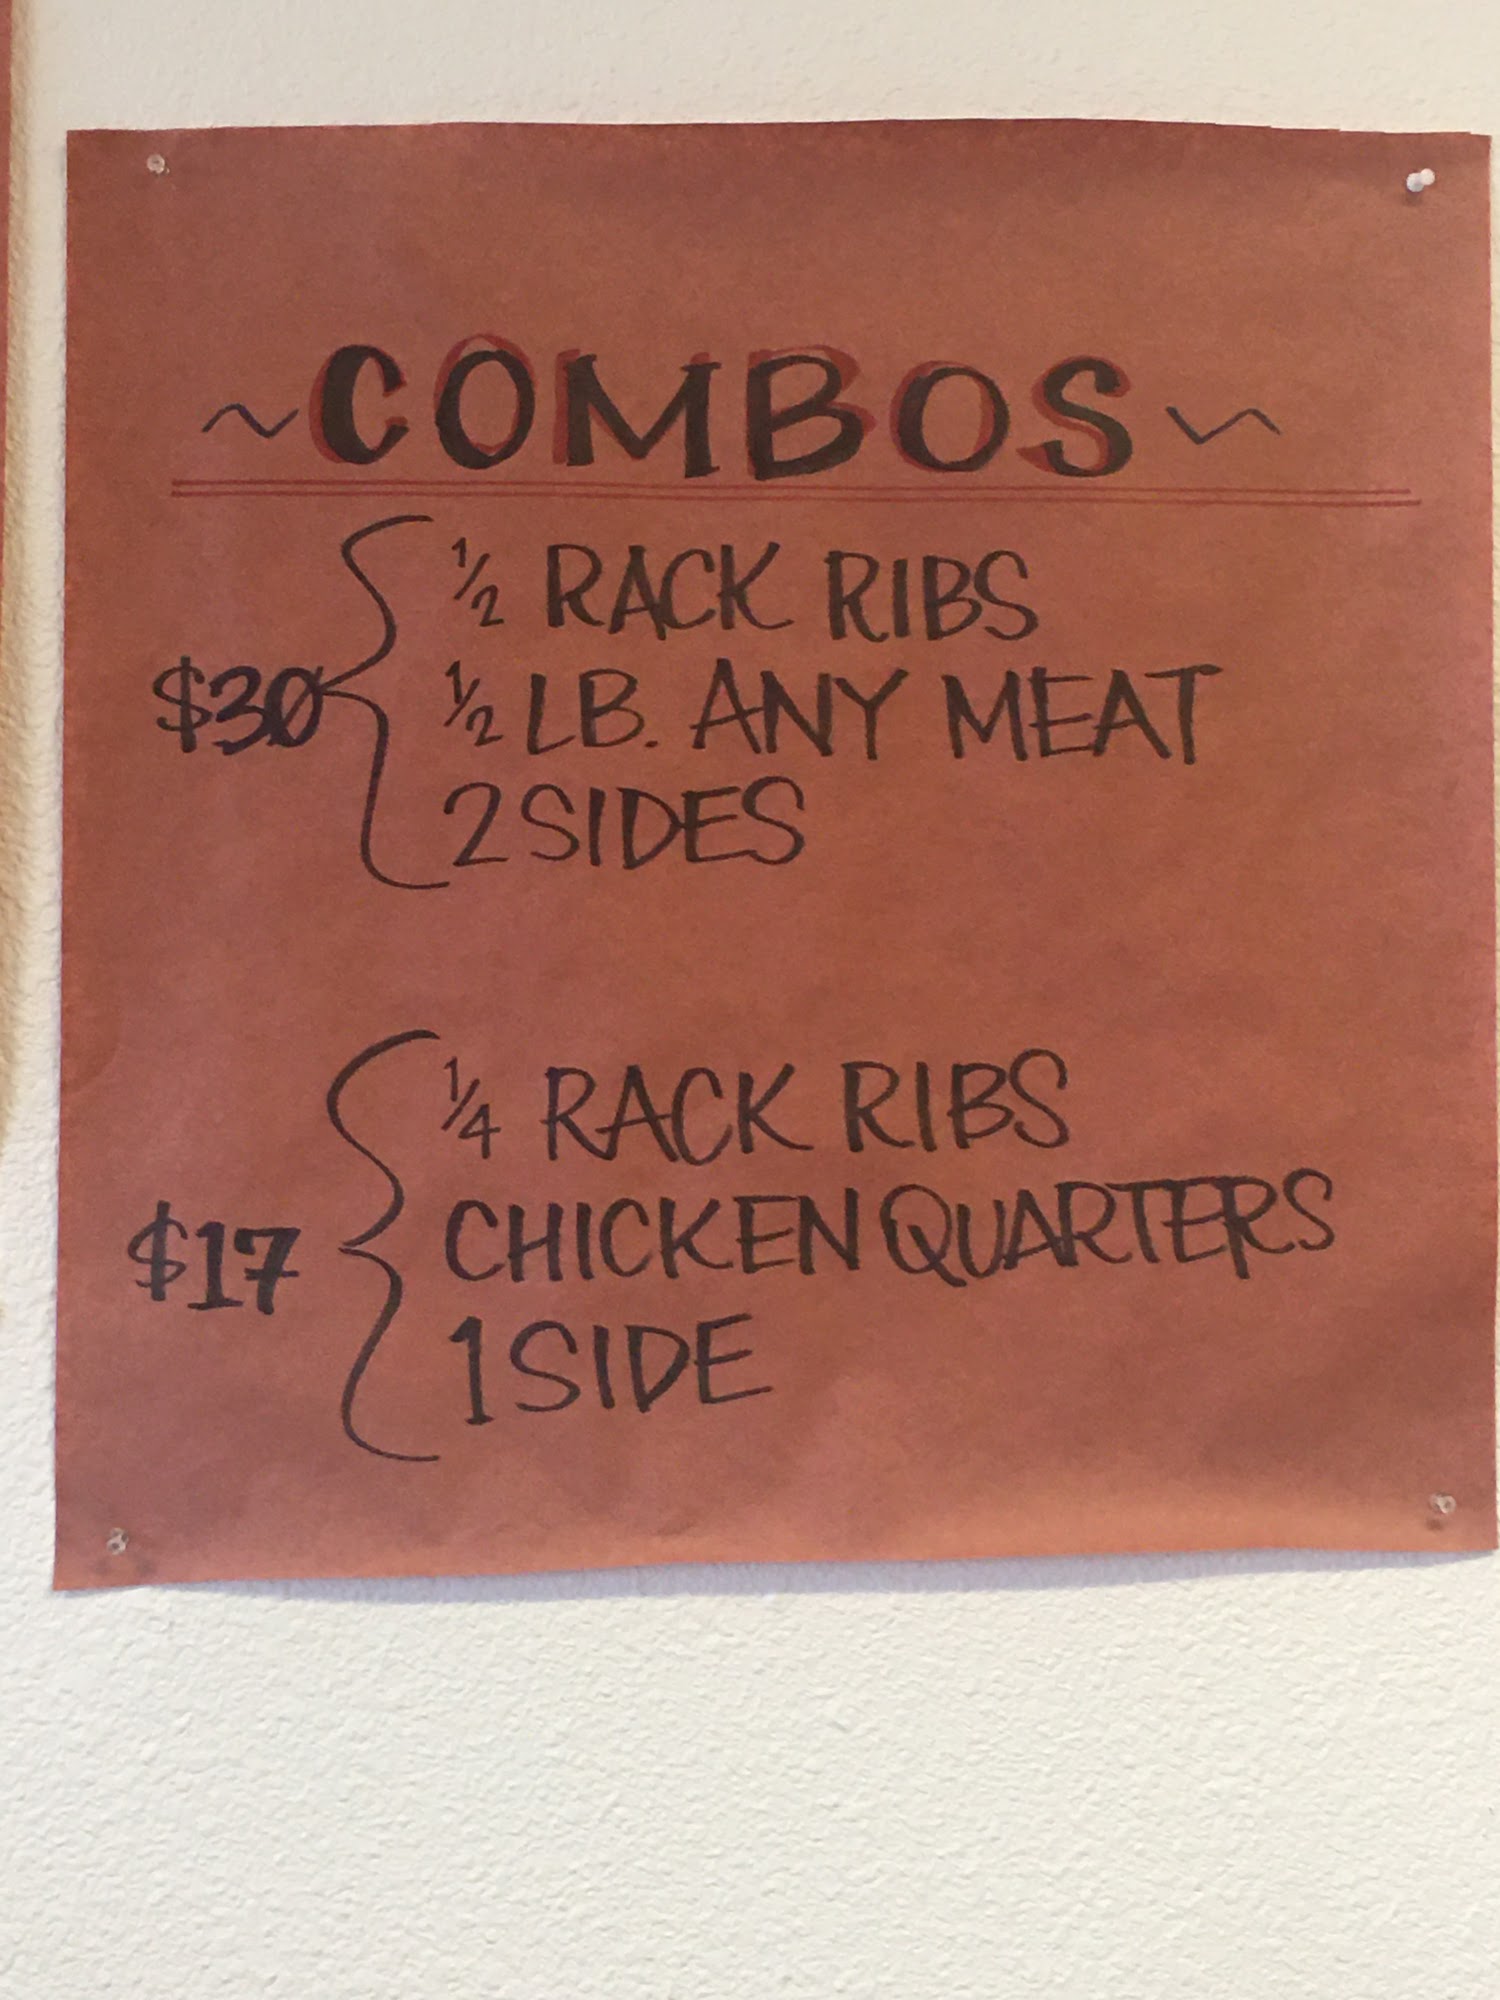 ~COMBOS~
½ RACK RIBS
$30 ½ LB. ANY MEAT
2 SIDES
¼ RACK RIBS
$17 CHICKEN QUARTERS
1 SIDE